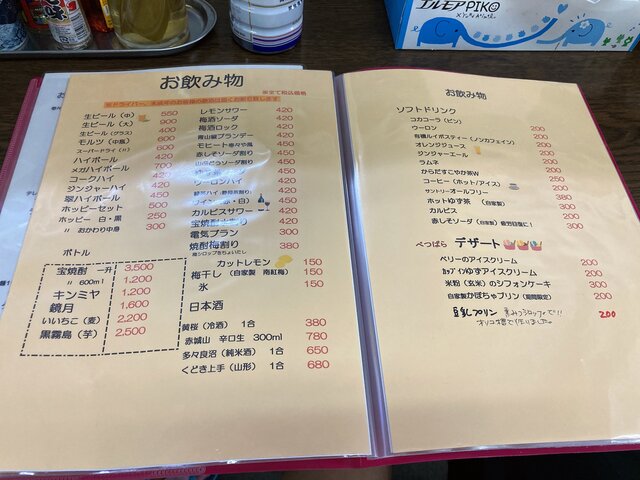 エルモアPIKO
お飲み物
※全て税込価格
生ビール（中） 550
生ビール（大） 900
生ビール（グラス） 400
モルツ（中瓶） 600
スーパードライ（中） 600
ハイボール 420
メガハイボール 700
コークハイ 420
ジンジャーハイ 420
翠ハイボール 450
ホッピーセット 500
ホッピー 白・黒 250
〃 おかわり中島 250
ボトル
宝焼酎 一升 3,500
〃 600ml 1,200
キンミヤ 1,200
鏡月 1,600
いいちこ（麦） 2,200
黒霧島（芋） 2,500
レモンサワー 420
梅酒ソーダ 420
梅酒ロック 420
420
モヒート 450
赤しそソーダ割り 450
450
420
ウーロンハイ 420
カルピスサワー 420
420
電気ブラン 300
焼酎梅割り 380
梅シロップをちょいだし
カットレモン 150
梅干し（自家製 南紅梅） 150
氷 150
日本酒
黄桜（冷酒） 1合 380
赤城山 辛口生 300ml 780
多々良沼（純米酒） 1合 650
くどき上手（山形） 1合 680
お飲み物
ソフトドリンク
コカコーラ（ビン） 200
ウーロン 200
有機ルイボスティー（ノンカフェイン） 200
オレンジジュース 200
ジンジャーエール 200
ラムネ 200
からだすこやか茶W 200
コーヒー（ホット/アイス） 250
サントリーオールフリー 380
ホットゆず茶（自家製） 300
カルピス 200
赤しそソーダ（自家製）疲労回復に！ 200
べつばら デザート
ベリーのアイスクリーム 200
ｶｯﾌﾟｲﾝゆずアイスクリーム 200
米粉（玄米）のシフォンケーキ 300
自家製かぼちゃプリン（期間限定） 200
豆乳プリン 200